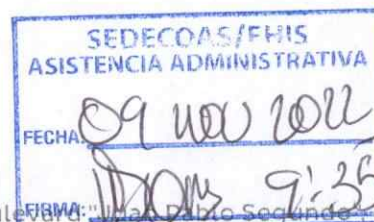 SEDECOAS/FHIS
ASISTENCIA ADMINISTRATIVA
FECHA: 09 nov 2022
FIRMA: 9:35
"Juan Pablo Segundo